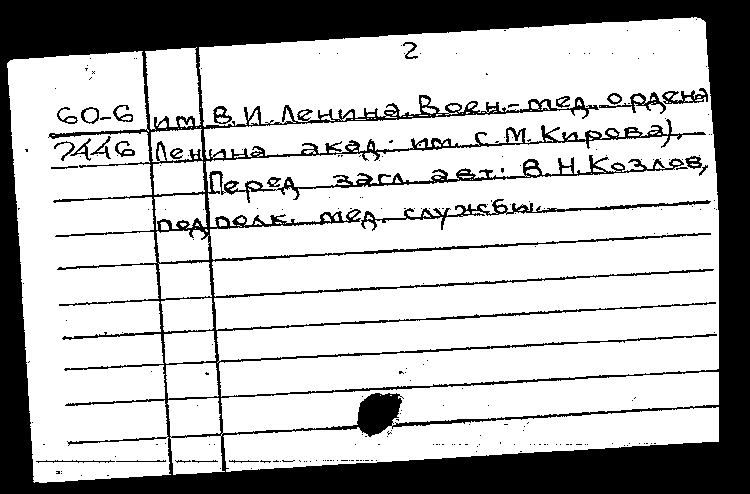 2
60-6 им. В. И. Ленина. Воен.-мед. ордена
7446 Ленина акад. им. С. М. Кирова).
Перед загл. авт.: В. Н. Козлов,
подполк. мед. службы.